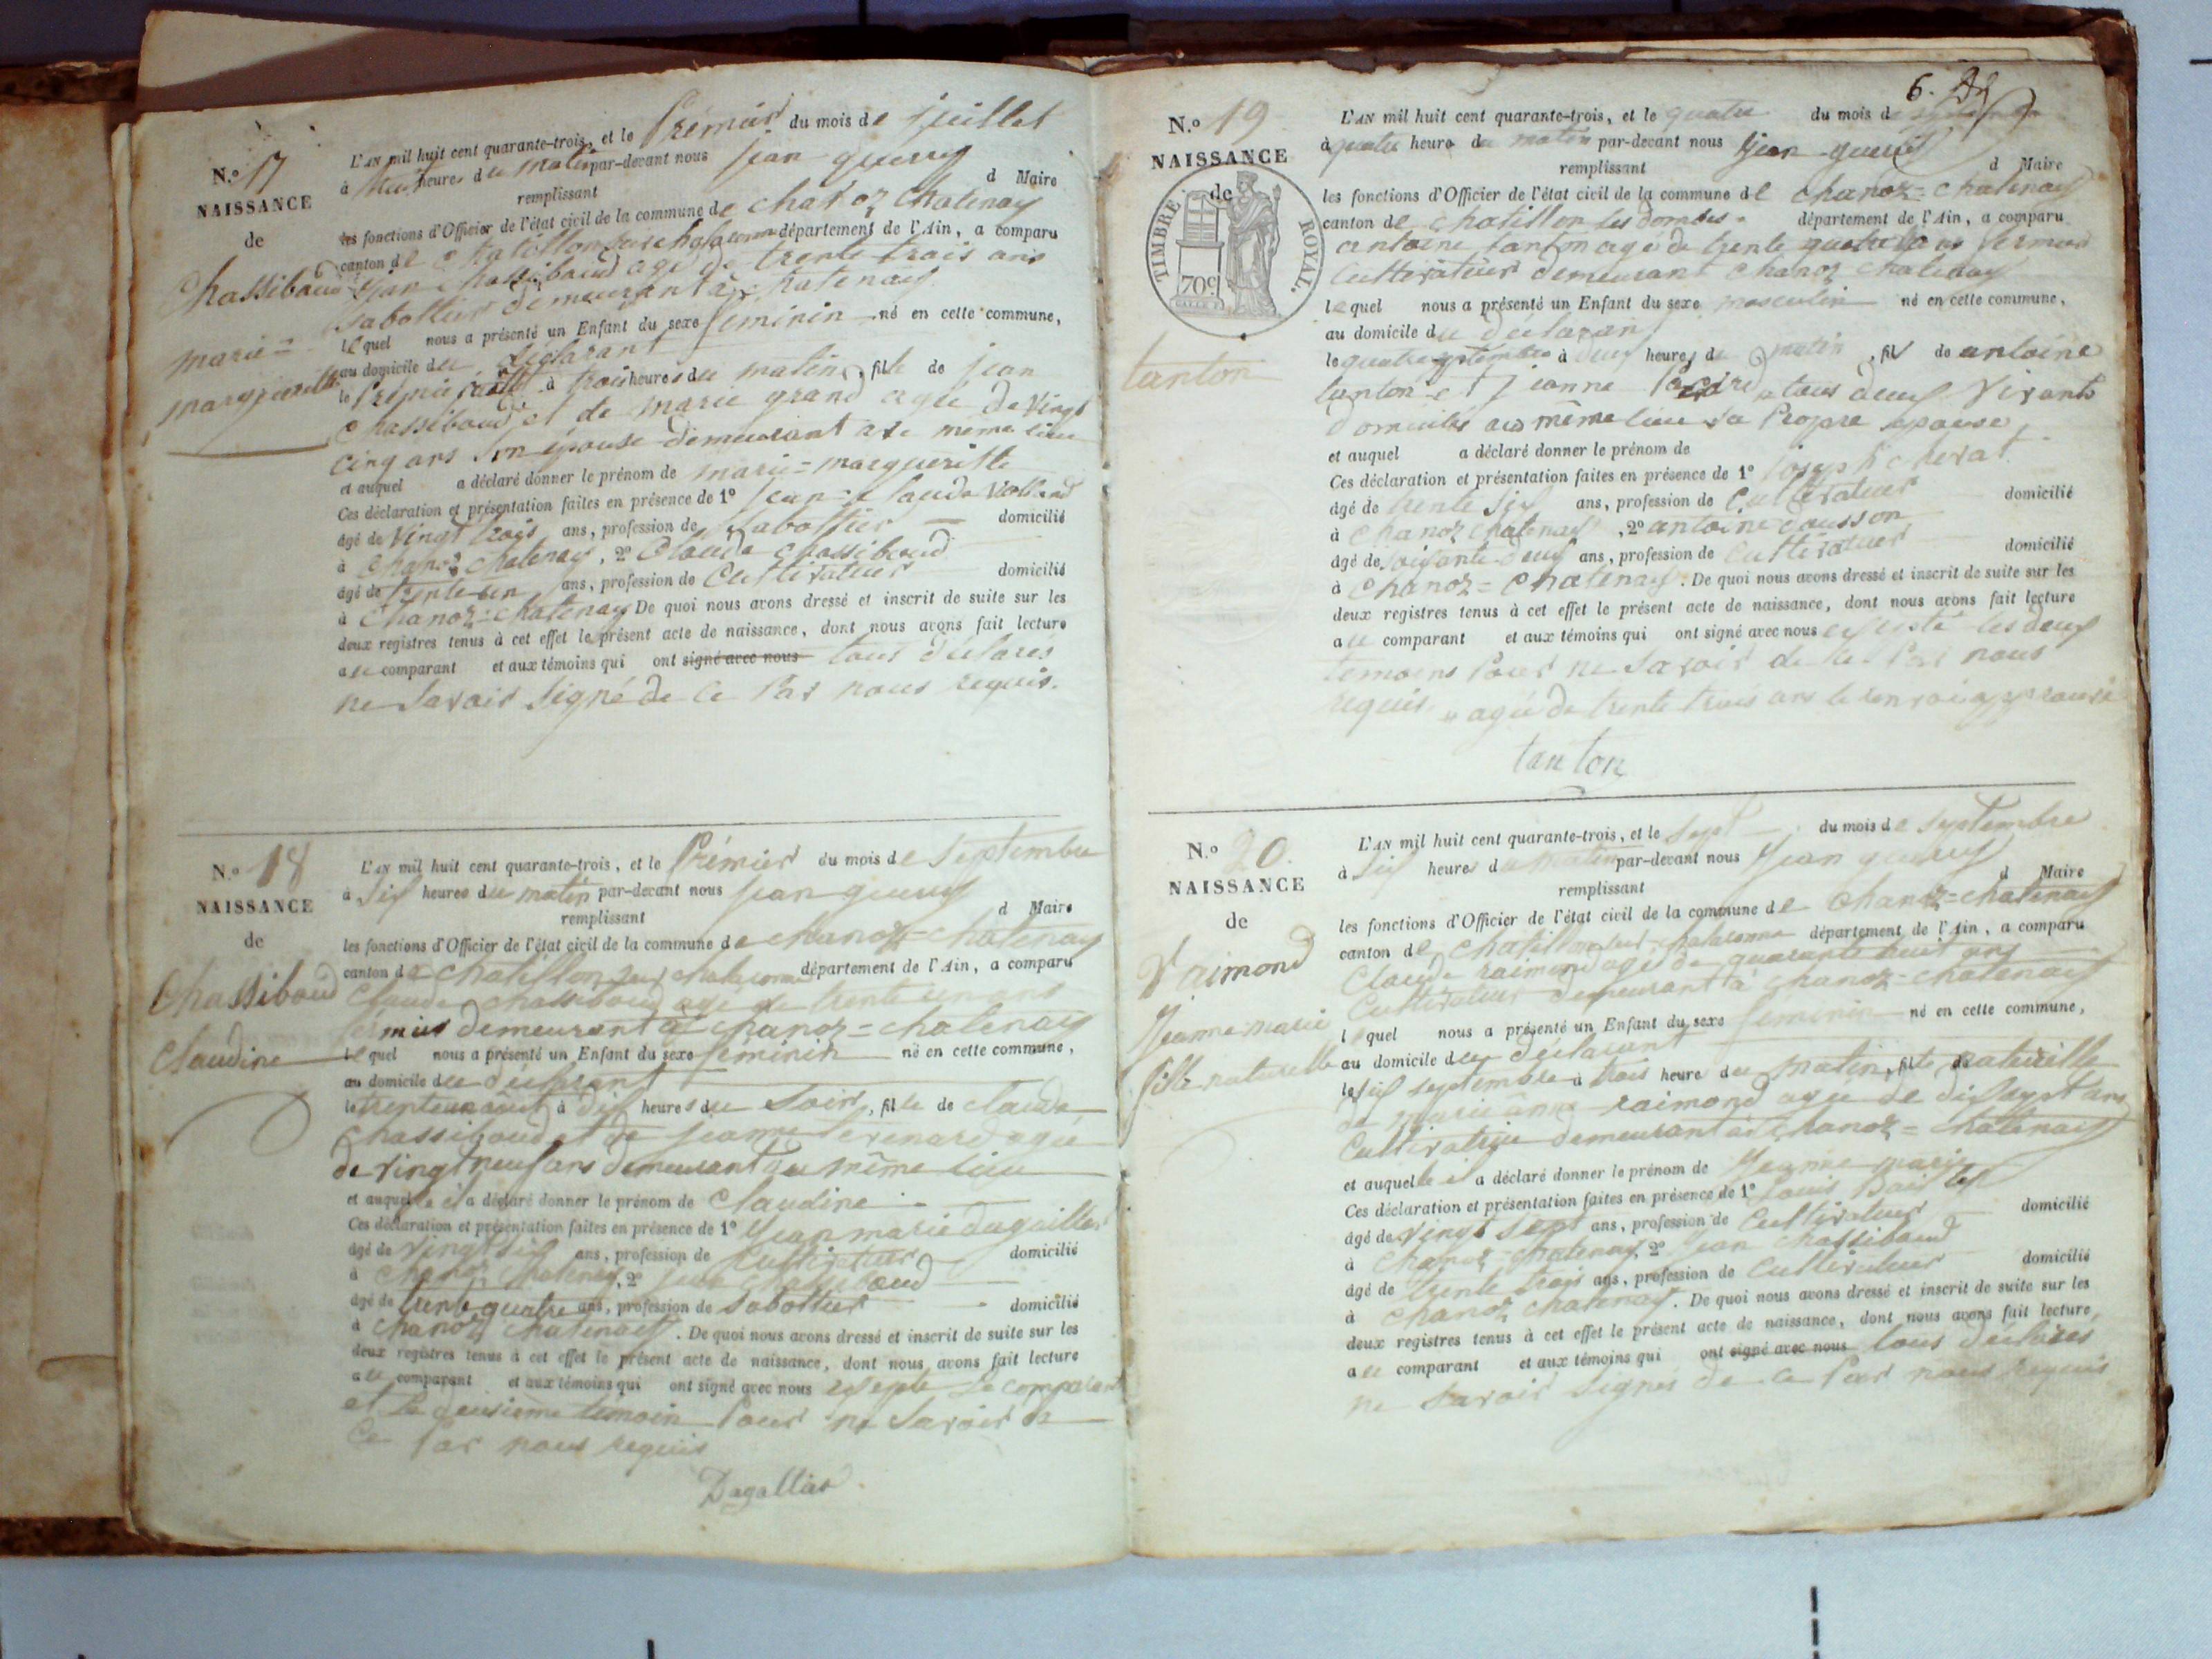 N.º 17
NAISSANCE
de
Chassiboud
marie=
margueritte
L'AN mil huit cent quarante-trois, et le Prémier du mois de juillet
à heures du matin par-devant nous jean guerry
remplissant d Maire
les fonctions d'Officier de l'état civil de la commune de chanoz chatenay
canton de chatillon sur chalaronne département de l'Ain, a comparu
jean chassiboud agé de trente trois ans
sabottier demeurant à chatenay
lequel nous a présenté un Enfant du sexe feminin né en cette commune,
au domicile du déclarant
le Prémier à trois heures du matin, fille de jean
chassiboud et de marie grand agée de vingt
cinq ans son épouse demeurant a le même lieu
et auquel a déclaré donner le prénom de marie=margueritte
Ces déclaration et présentation faites en présence de 1º jean claude
âgé de vingt trois ans, profession de sabottier domicilié
à chanoz chatenay, 2º Claude chassiboud
âgé de trente un ans, profession de Cultivateur domicilié
à chanoz=chatenay De quoi nous avons dressé et inscrit de suite sur les
deux registres tenus à cet effet le présent acte de naissance, dont nous avons fait lecture
au comparant et aux témoins qui ont signé avec nous tous déclarés
ne savoir signé de ce Par nous requis.
N.º 18
NAISSANCE
de
Chassiboud
Claudine
L'AN mil huit cent quarante-trois, et le Prémier du mois de septembre
à six heures du matin par-devant nous jean guerry
remplissant d Maire
les fonctions d'Officier de l'état civil de la commune de chanoz=chatenay
canton de chatillon sur chalaronne département de l'Ain, a comparu
Claude chassiboud agé de trente un ans
fermier demeurant à chanoz=chatenay
lequel nous a présenté un Enfant du sexe féminin né en cette commune,
au domicile du déclarant
le trente un août à dix heures du soir, fille de claude
chassiboud et de jeanne renard agée
de vingt neuf ans demeurant au même lieu
et auquelle il a déclaré donner le prénom de Claudine
Ces déclaration et présentation faites en présence de 1º jean marie dagallier
âgé de vingt six ans, profession de Cultivateur domicilié
à chanoz chatenay, 2º jean chassiboud
âgé de trente quatre ans, profession de sabottier domicilié
à chanoz chatenay. De quoi nous avons dressé et inscrit de suite sur les
deux registres tenus à cet effet le présent acte de naissance, dont nous avons fait lecture
au comparant et aux témoins qui ont signé avec nous excepté Le comparant
et le deusième temoin Pour ne savoir de
Ce Par nous requis
Dagallier
6.
N.º 19
NAISSANCE
de
TIMBRE ROYAL.
70c
tanton
L'AN mil huit cent quarante-trois, et le quatre du mois de septembre
à quatre heure du matin par-devant nous jean guerry
remplissant d Maire
les fonctions d'Officier de l'état civil de la commune de chanoz=chatenay
canton de chatillon les dombes département de l'Ain, a comparu
antoine tanton agé de trente quatre ans fermier
Cultivateur demeurant chanoz chatenay
lequel nous a présenté un Enfant du sexe masculin né en cette commune,
au domicile du declarant
le quatre septembre à deux heures du matin, fils de antoine
tanton et jeanne tous deux vivants
domiciliés au même lieu sa Propre épouse
et auquel a déclaré donner le prénom de
Ces déclaration et présentation faites en présence de 1º joseph cherat
âgé de trente six ans, profession de Cultivateur domicilié
à chanoz chatenay, 2º antoine cousson
âgé de soixante deux ans, profession de Cultivateur domicilié
à chanoz=chatenay. De quoi nous avons dressé et inscrit de suite sur les
deux registres tenus à cet effet le présent acte de naissance, dont nous avons fait lecture
au comparant et aux témoins qui ont signé avec nous excepté les deux
temoins Pour ne savoir de ce Par nous
requis agée de trente trois ans le renvoi approuvé
tanton
N.º 20.
NAISSANCE
de
raimond
Jeanne marie
fille naturelle
L'AN mil huit cent quarante-trois, et le sept du mois de septembre
à six heures du matin par-devant nous jean guerry
remplissant d Maire
les fonctions d'Officier de l'état civil de la commune de chanoz=chatenay
canton de chatillon sur chalaronne département de l'Ain, a comparu
Claude raimond agé de quarante huit ans
Cultivateur demeurant à chanoz=chatenay
lequel nous a présenté un Enfant du sexe feminin né en cette commune,
au domicile du déclarant
le six septembre à trois heure du matin, fille naturelle
de marie anne raimond agée de dix sept ans
Cultivatrice demeurant à chanoz=chatenay
et auquelle il a déclaré donner le prénom de jeanne marie
Ces déclaration et présentation faites en présence de 1º Louis
âgé de vingt sept ans, profession de Cultivateur domicilié
à chanoz=chatenay, 2º jean chassiboud
âgé de trente trois ans, profession de cultivateur domicilié
à chanoz chatenay. De quoi nous avons dressé et inscrit de suite sur les
deux registres tenus à cet effet le présent acte de naissance, dont nous avons fait lecture
au comparant et aux témoins qui ont signé avec nous tous declarés
ne savoir signés de ce Par nous requis